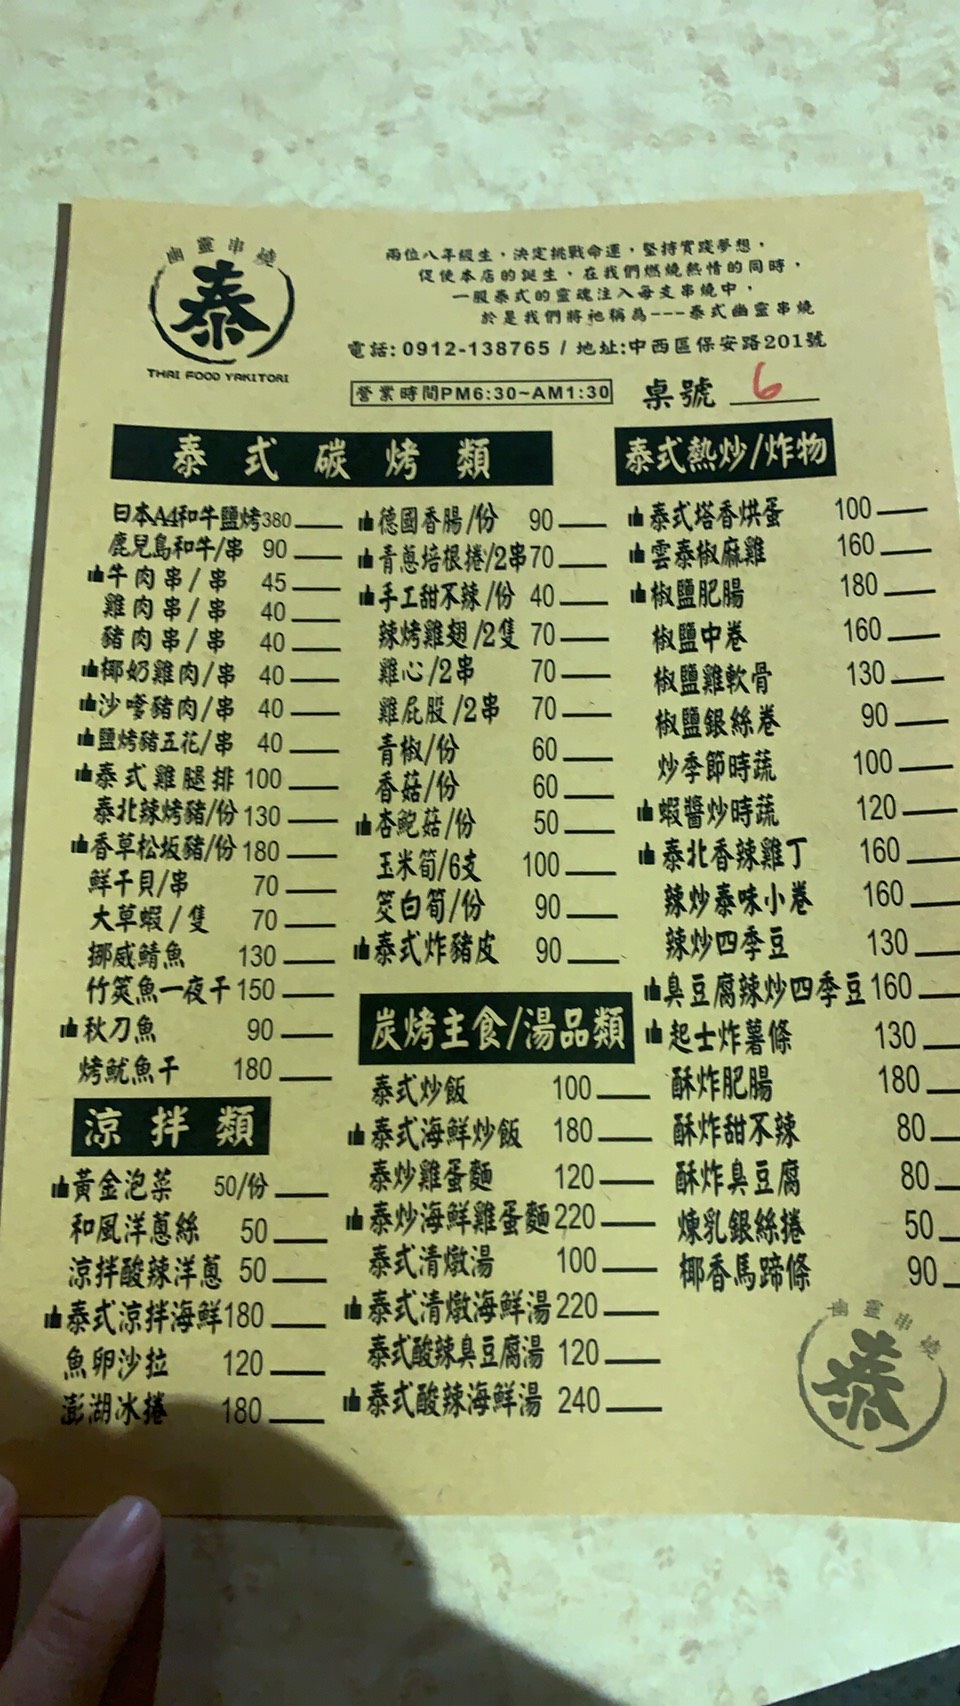 幽靈串燒
泰
THAI FOOD YAKITORI
兩位八年級生，決定挑戰命運，堅持實踐夢想，
促使本店的誕生，在我們燃燒熱情的同時，
一股泰式的靈魂注入每支串燒中，
於是我們將祂稱為---泰式幽靈串燒
電話:0912-138765 / 地址:中西區保安路201號
營業時間PM6:30~AM1:30
桌號 6
泰式碳烤類
日本A4和牛鹽烤380
鹿兒島和牛/串 90
牛肉串/串 45
雞肉串/串 40
豬肉串/串 40
椰奶雞肉/串 40
沙嗲豬肉/串 40
鹽烤豬五花/串 40
泰式雞腿排 100
泰北辣烤豬/份 130
香草松坂豬/份 180
鮮干貝/串 70
大草蝦/隻 70
挪威鯖魚 130
竹筴魚一夜干 150
秋刀魚 90
烤魷魚干 180
德國香腸/份 90
青蔥培根捲/2串 70
手工甜不辣/份 40
辣烤雞翅/2隻 70
雞心/2串 70
雞屁股/2串 70
青椒/份 60
香菇/份 60
杏鮑菇/份 50
玉米筍/6支 100
筊白筍/份 90
泰式炸豬皮 90
涼拌類
黃金泡菜 50/份
和風洋蔥絲 50
涼拌酸辣洋蔥 50
泰式涼拌海鮮 180
魚卵沙拉 120
澎湖冰捲 180
炭烤主食/湯品類
泰式炒飯 100
泰式海鮮炒飯 180
泰炒雞蛋麵 120
泰炒海鮮雞蛋麵 220
泰式清燉湯 100
泰式清燉海鮮湯 220
泰式酸辣臭豆腐湯 120
泰式酸辣海鮮湯 240
泰式熱炒/炸物
泰式塔香烘蛋 100
雲泰椒麻雞 160
椒鹽肥腸 180
椒鹽中卷 160
椒鹽雞軟骨 130
椒鹽銀絲卷 90
炒季節時蔬 100
蝦醬炒時蔬 120
泰北香辣雞丁 160
辣炒泰味小卷 160
辣炒四季豆 130
臭豆腐辣炒四季豆 160
起士炸薯條 130
酥炸肥腸 180
酥炸甜不辣 80
酥炸臭豆腐 80
煉乳銀絲捲 50
椰香馬蹄條 90
幽靈串燒
泰